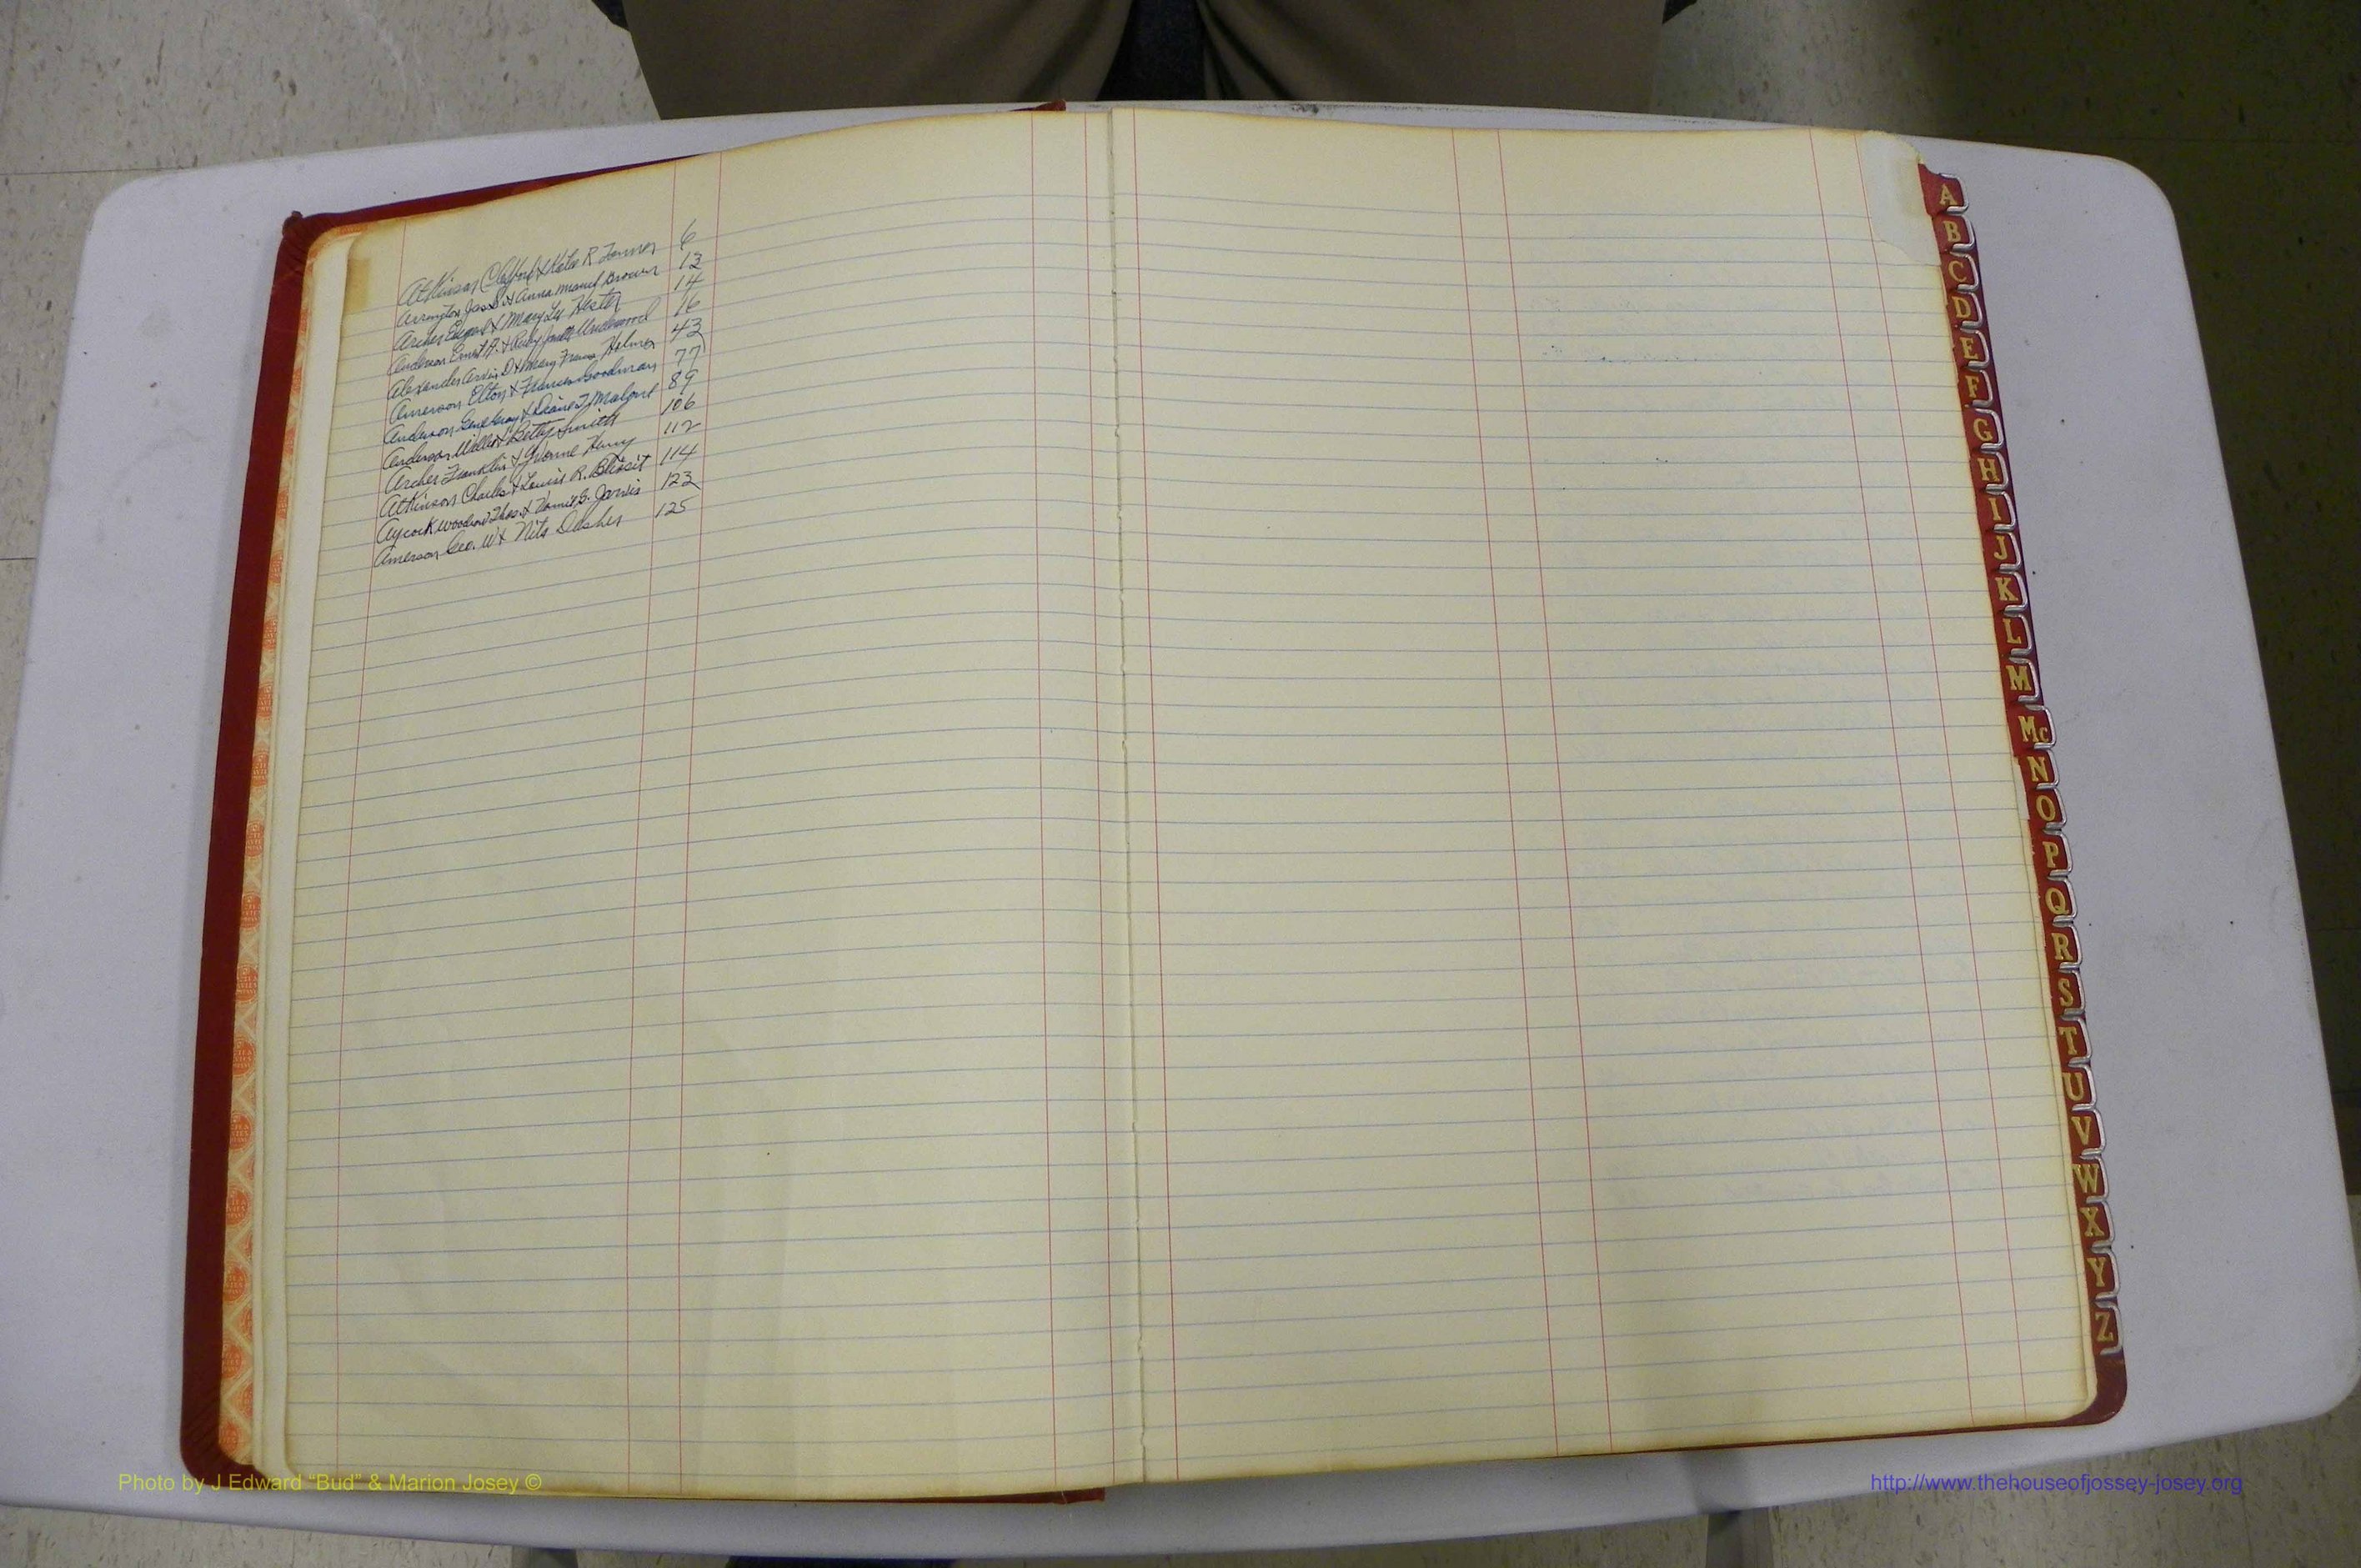 Atkinson Clifford & Katie R Tanner 6
Arrington Jas S. & Anna Muriel Brown 13
Archer Edgar & Mary Lu Hester 14
Anderson Ernst A. & Ruby Underwood 16
Alexander Arvin D & Mary Frances Helmer 43
Amerson Elton & Frances Goodman 77
Anderson Gene & Diane J Malone 89
Anderson Willie & Betty Smith 106
Archer Franklin & Yvonne Henry 112
Atkinson Charles & Louise R. 114
Aycock Woodrow Thos. & S. Jarvis 123
Amerson Geo. W & Nita Dasher 125
A
B
C
D
E
F
G
H
I
J
K
L
M
Mc
N
O
P
Q
R
S
T
U
V
W
X
Y
Z
Photo by J Edward “Bud” & Marion Josey ©
http://www.thehouseofjossey-josey.org